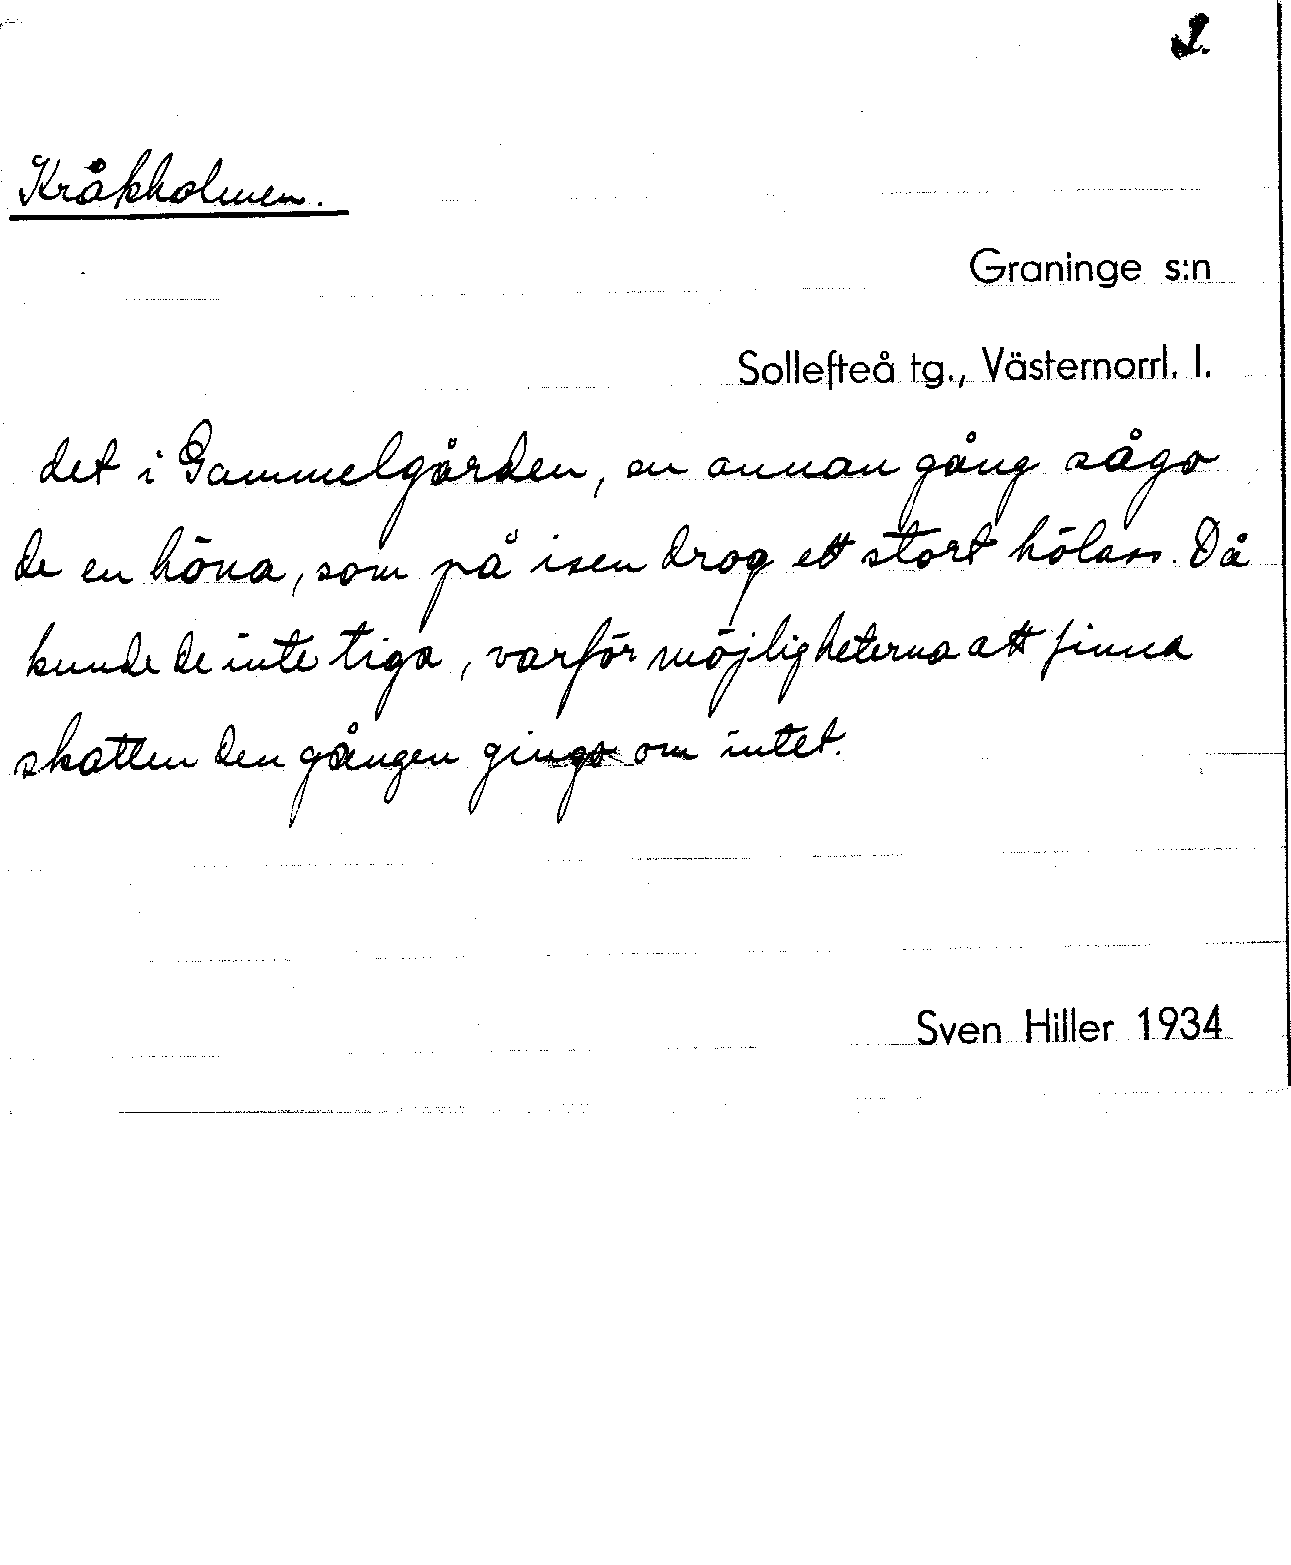 2.
Kråkholmen.
Graninge s:n
Sollefteå tg., Västernorrl. l.
det i Gammelgården, en annan gång sågo
de en höna, som på isen drog ett stort hölass. Då
kunde de inte tiga, varför möjligheterna att finna
skatten den gången gingo om intet.
Sven Hiller 1934